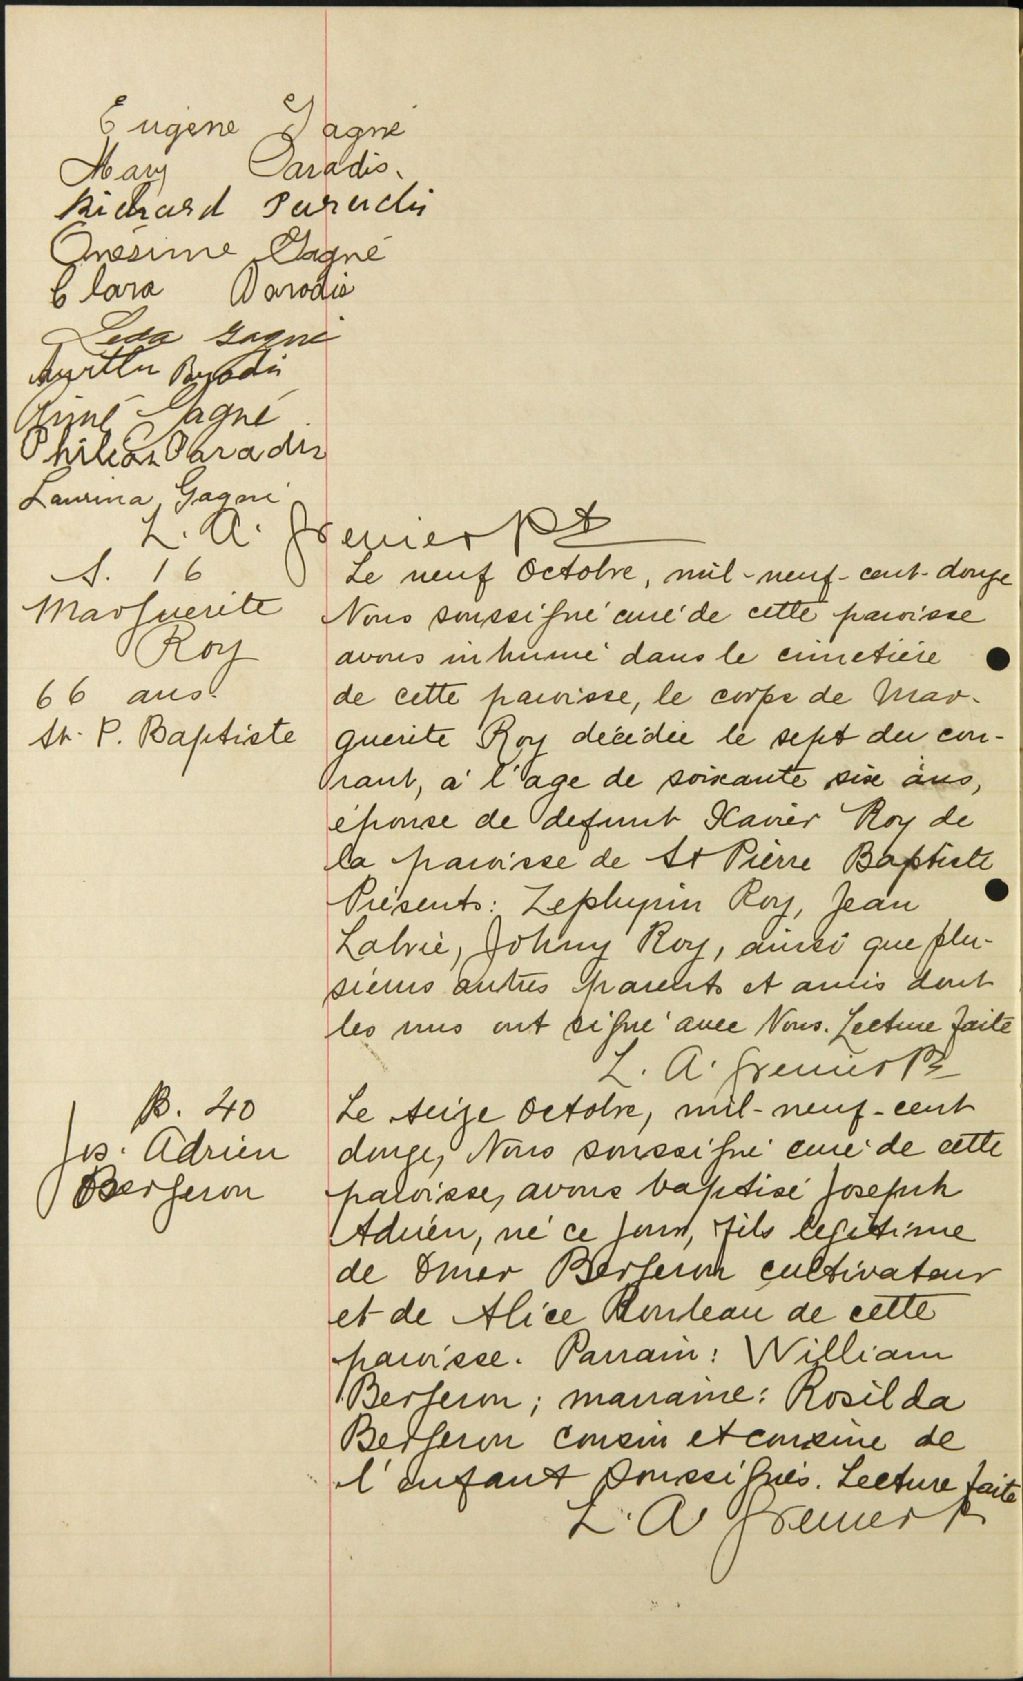 Eugène Gagné
Mary Paradis.
Richard Paradis
Onésime Gagné
Clara Paradis
Leda Gagné
Paradis
Aimé Gagné
Philias Paradis
Laurina Gagné
L. A. Grenier Pt
S. 16
Marguerite
Roy
66 ans.
St. P. Baptiste
Le neuf Octobre, mil-neuf-cent-douze
Nous soussigné curé de cette paroisse
avons inhumé dans le cimetière
de cette paroisse, le corps de Mar-
guerite Roy décédée le sept du cou-
rant, à l'age de soixante six ans,
épouse de defunt Xavier Roy de
la paroisse de St Pierre Baptiste
Présents: Zephyrin Roy, Jean
Labrie, Johny Roy, ainsi que plu-
sieurs autres parents et amis dont
les uns ont signé avec Nous. Lecture faite
L. A. Grenier Pt
B. 40
Jos. Adrien
Bergeron
Le seize Octobre, mil-neuf-cent
douze, Nous soussigné curé de cette
paroisse, avons baptisé Joseph
Adrien, né ce jour, fils legitime
de Omer Bergeron cultivateur
et de Alice Rouleau de cette
paroisse. Parrain: William
Bergeron; marraine: Rosilda
Bergeron cousin et cousine de
l'enfant soussignés. Lecture faite
L. A. Grenier P